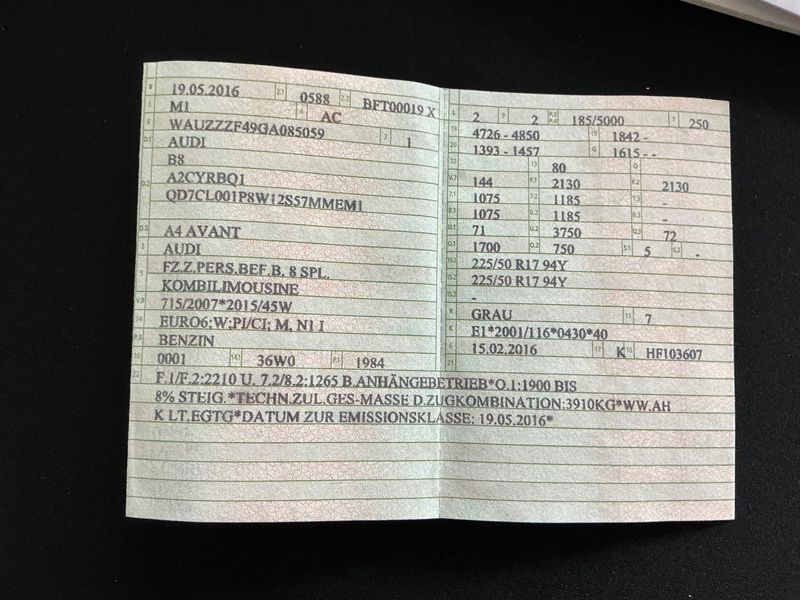 B 19.05.2016 2.1 0588 2.2 BFT00019 X
J M1 4 AC
E WAUZZZF49GA085059 3 1
D.1 AUDI
B8
D.2 A2CYRBQ1
QD7CL001P8W12S57MMEM1
D.3 A4 AVANT
2 AUDI
5 FZ.Z.PERS.BEF.B. 8 SPL.
KOMBILIMOUSINE
V.9 715/2007*2015/45W
14 EURO6;W;PI/CI; M, N1 I
P.3 BENZIN
10 0001 14.1 36W0 P.1 1984
L 2 9 2 P.2 P.4 185/5000 T 250
18 4726 - 4850 19 1842 -
20 1393 - 1457 G 1615 - -
12 13 80 Q
V.7 144 F.1 2130 F.2 2130
7.1 1075 7.2 1185 7.3 -
8.1 1075 8.2 1185 8.3 -
U.1 71 U.2 3750 U.3 72
O.1 1700 O.2 750 S.1 5 S.2 -
15.1 225/50 R17 94Y
15.2 225/50 R17 94Y
15.3 -
R GRAU 11 7
K E1*2001/116*0430*40
6 15.02.2016 17 K 16 HF103607
21
22 F.1/F.2:2210 U. 7.2/8.2:1265 B.ANHÄNGEBETRIEB*O.1:1900 BIS
8% STEIG.*TECHN.ZUL.GES-MASSE D.ZUGKOMBINATION:3910KG*WW.AH
K LT.EGTG*DATUM ZUR EMISSIONSKLASSE: 19.05.2016*